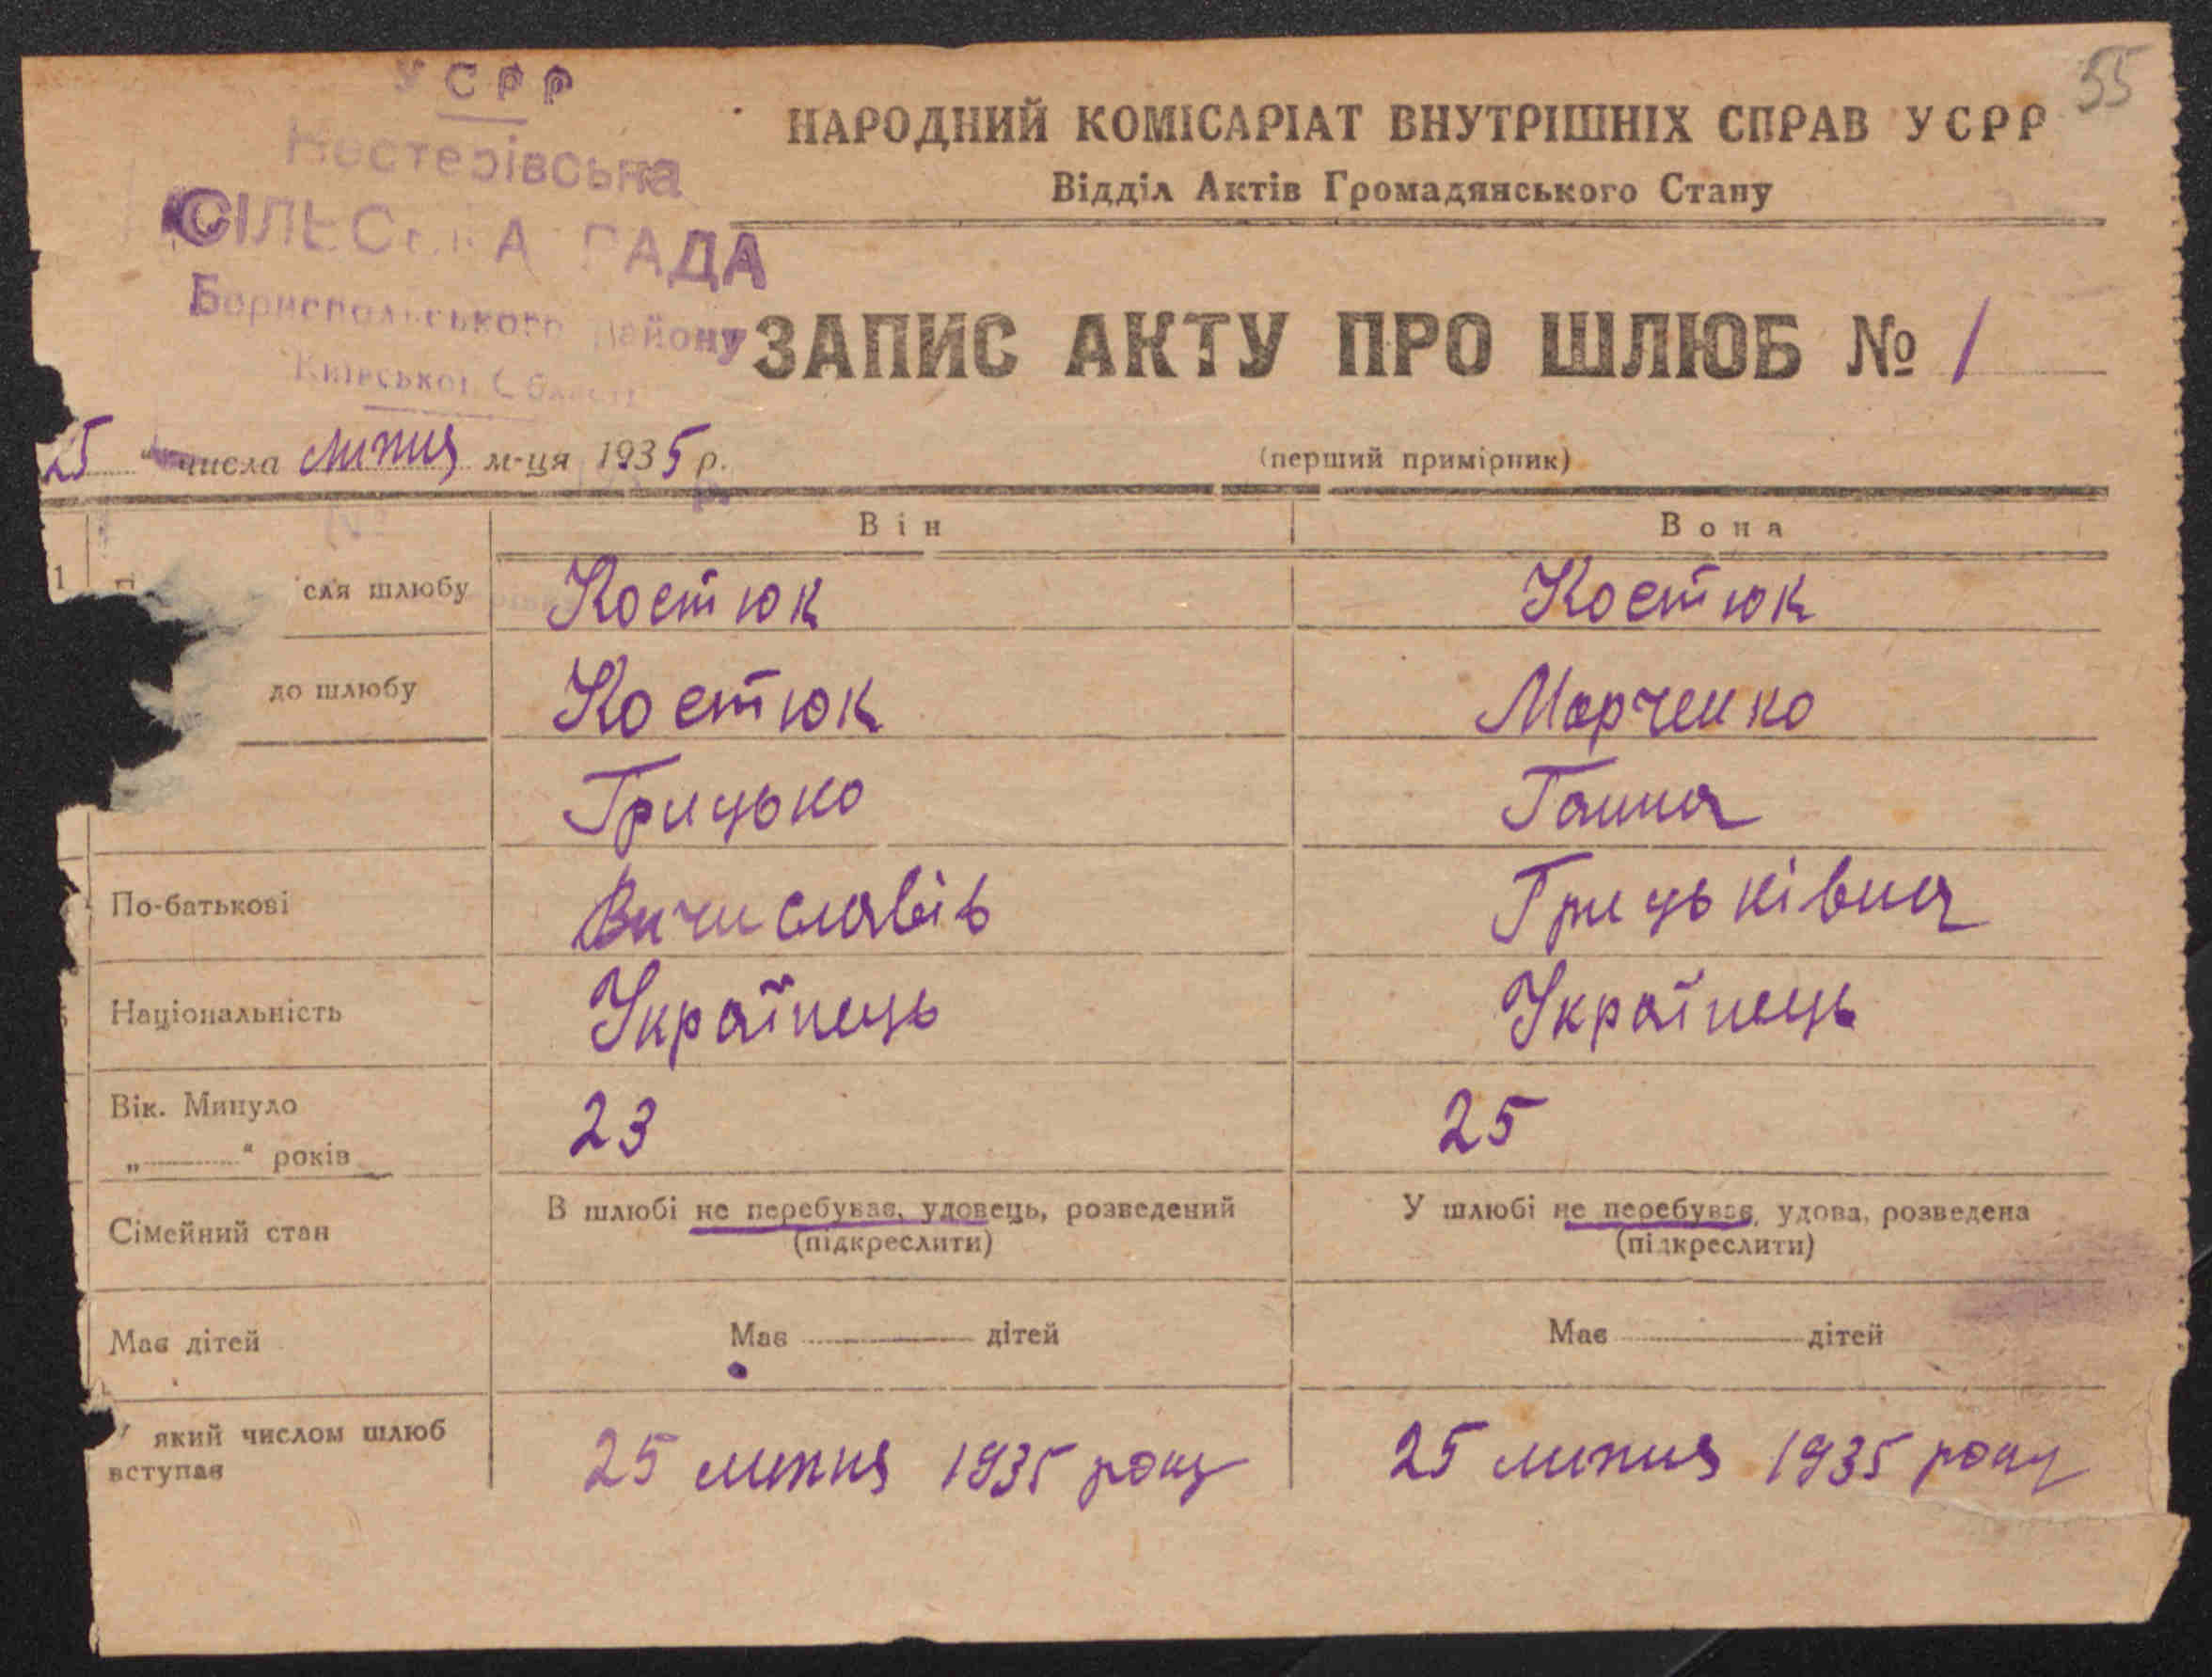 55
УСРР
Нестерівська
СІЛЬСЬКА РАДА
Бориспольського району
Київської Області
НАРОДНИЙ КОМІСАРІАТ ВНУТРІШНІХ СПРАВ УСРР
Відділ Актів Громадянського Стану
ЗАПИС АКТУ ПРО ШЛЮБ № 1
25 числа липня м-ця 1935 р.
(перший примірник)
Він Вона
1 сля шлюбу Костюк Костюк
до шлюбу Костюк Марченко
Грицько Ганна
По-батькові Вичиславів Грицьківна
Національність Українець Українець
Вік. Минуло
„ “ років 23 25
Сімейний стан В шлюбі не перебуває, удовець, розведений У шлюбі не перебуває, удова, розведена
(підкреслити) (підкреслити)
Має дітей Має дітей Має дітей
який числом шлюб
вступає 25 липня 1935 року 25 липня 1935 року